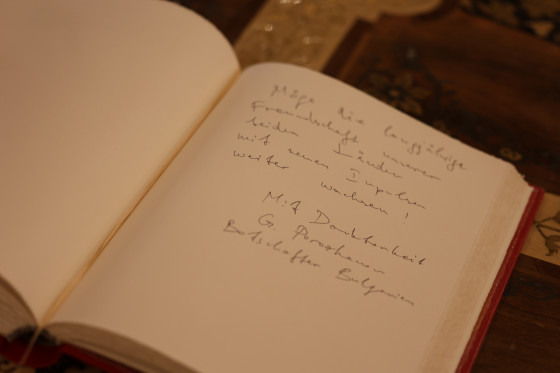 Möge die langjährige
Freundschaft unserer
beiden Länder
mit neuen Impulsen
weiter wachsen!
Mit Dankbarkeit
G.
Botschafter Bulgarien